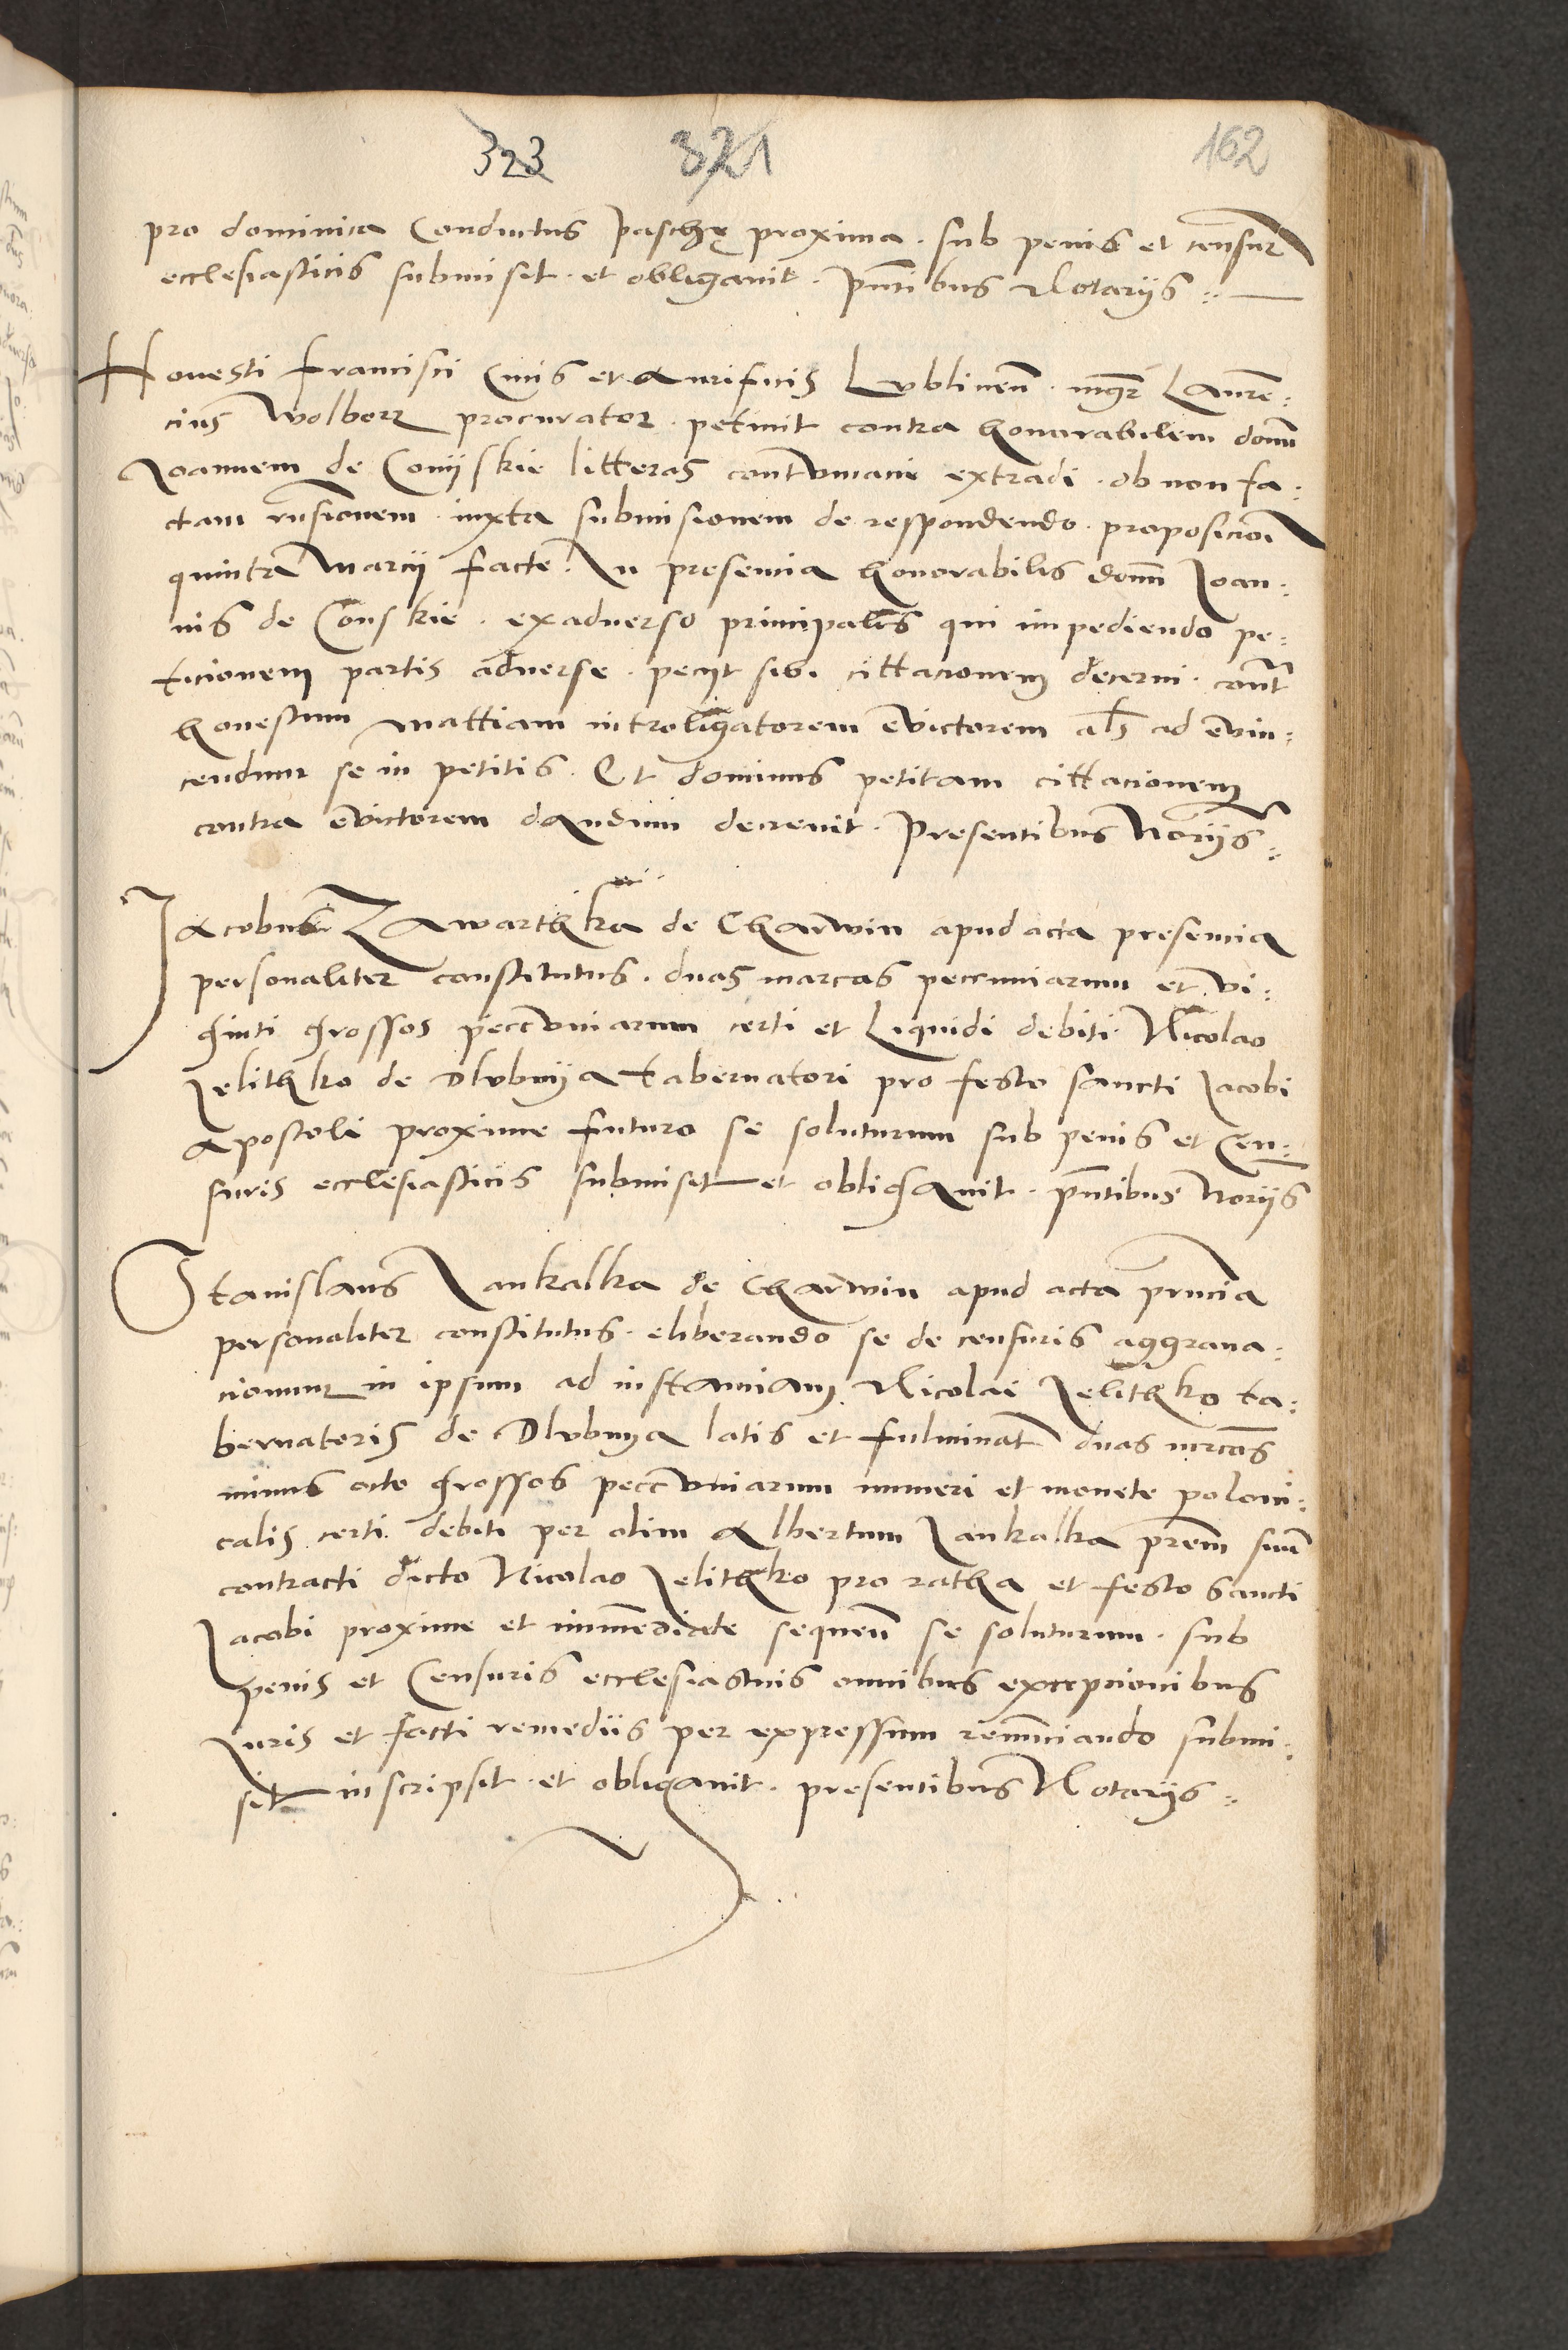 323 321 162
pro dominica Conductus paschę proxima. sub penis et censur
ecclesiasticis submisit. et obligauit. pñtibus Notarijs :
Honesti Francisci Ciuis et Aurificis Lublineñ. mgr̃ Lauren:
cius Wolborz procurator. petiuit contra honorabilem domñ
Joannem de Conijskie litteras contumacie extradi. ob non fa:
ctam rñsionem. iuxta submisionem de respondendo. proposicioi
quinta marcij facte. In presencia honorabilis domñ Joan:
nis de Conskie. exaduerso principalis qui impediendo pe:
ticionem partis aduerse. peciit sibi cittacionem decerni. cont̃
honestum mattiam introligatorem euictorem als̃ ad euin:
cendum se in petitis. Et dominus petitam cittacionem
contra euictorem dandam decreuit. Presentibus Norijs :
Jacobus Zawarthka de Charwin apud acta presencia
personaliter constitutus. duas marcas peccuniarum et vi:
ginti grossos peccuniarum certi et Liquidi debiti. Nicolao
Jelithko de Dlubnija tabernatori pro festo sancti Jacobi
apostoli proxime futuro se soluturum sub penis et Cen:
suris ecclesiasticis submisit et obligauit. pñtibus Norijs
Stanislaus Jankalka de Charwin apud acta pñncia
personaliter constitutus. eliberando se de censuris aggraua:
cionum in ipsum ad instanciam Nicolai Jelithko ta:
bernatoris de Dlubnya latis et fulminat̃ duas mrcas
minus octo grossos peccuniarum numeri et monete poloni:
calis certi debiti per olim Albertum Jankalka prem̃ suũ
contracti dicto Nicolao Jelithko pro ratha et festo sancti
Jacobi proxime et immediate sequeñ se soluturum. sub
penis et Censuris ecclesiasticis omnibus excepcionibus
Juris et facti remediis per expressum renũciando submi:
sit inscripsit et obligauit. presentibus Notarijs :